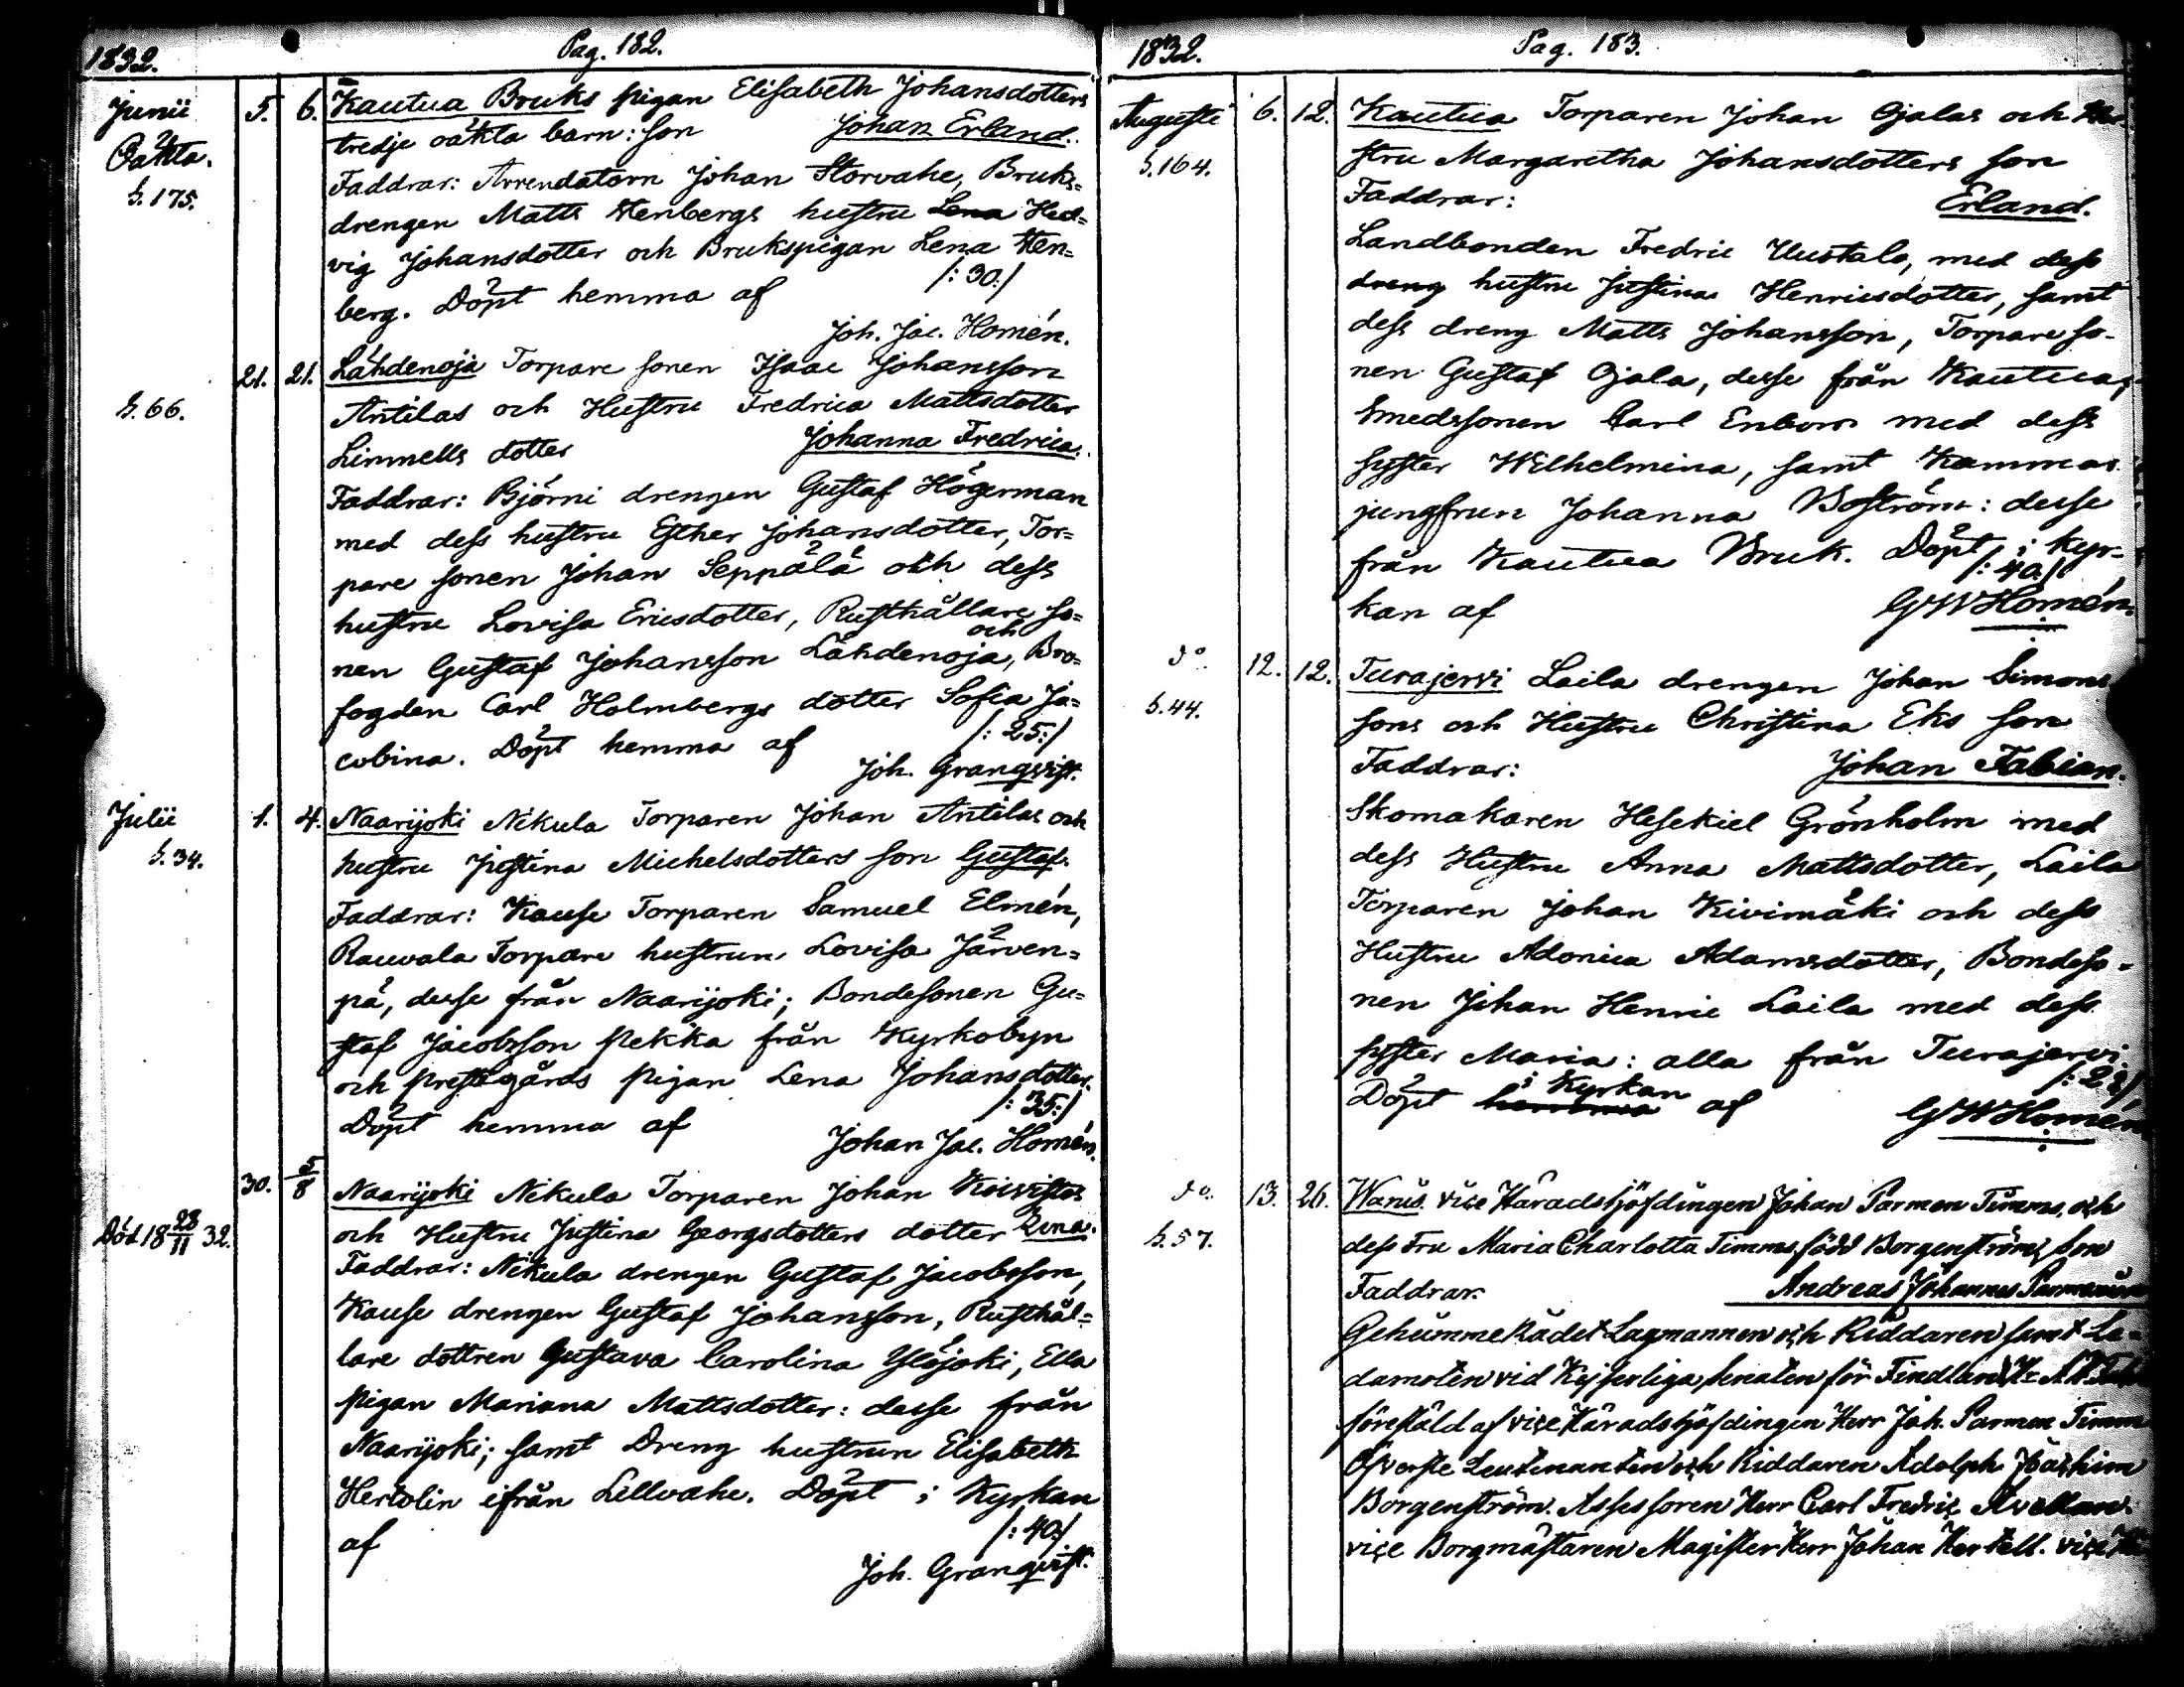 1832.
Pag. 182.
Junii 5. 6. Kautua Bruks pigan Elisabeth Johansdotters
Oäkta. tredje oäkta barn: son Johan Erland.
S. 175. Faddrar: Arrendatorn Johan Storvahe, Bruks=
drengen Matts Stenbergs hustru Lena Hed=
vig Johansdotter och Brukspigan Lena Sten=
berg. Döpt hemma af /: 30:/
Joh. Jac. Homén.
21. 21. Lähdenoja Torpare sonen Isaac Johansson
S. 66. Antilas och Hustru Fredrica Mattsdotter
Linnells dotter Johanna Fredrica.
Faddrar: Björni drengen Gustaf Högerman
med dess hustru Esther Johansdotter, Tor=
pare sonen Johan Seppälä och dess
hustru Lovisa Ericsdotter, Rusthållare so=
nen Gustaf Johansson Lähdenoja, och Bro=
fogden Carl Holmbergs dotter Sofia Ja=
cobina. Döpt hemma af /: 25:/
Joh. Granqvist.
Julii 1. 4. Naarijoki Nikula Torparen Johan Antilas och
S. 34. hustru Justina Michelsdotters son Gustaf.
Faddrar: Kause Torparen Samuel Elmén,
Rauvala Torpare hustrun Lovisa Järven=
pä, desse från Naarijoki; Bondesonen Gu=
staf Jacobsson Pekka från Kyrkobyn
och prestegårds pigan Lena Johansdotter.
Döpt hemma af /: 35:/
Johan Jac. Homén.
30. 5/8 Naarijoki Nikula Torparen Johan Koivistos
Död 18 28/11 32. och Hustru Justina Georgsdotters dotter Lena.
Faddrar: Nikula drengen Gustaf Jacobsson,
Kause drengen Gustaf Johansson, Rusthål=
lare dottren Gustava Carolina Yläjoki, Ella
pigan Mariana Mattsdotter: desse från
Naarijoki; samt Dreng hustrun Elisabeth
Hertolin ifrån Lellvahe. Döpt i Kyrkan
af /: 40:/
Joh. Granqvist.
1832.
Pag. 183.
Augusti 6. 12. Kautua Torparen Johan Ojalas och Hu-
S. 164. stru Margaretha Johansdotters son
Faddrar: Erland.
Landbonden Fredric Uustalo, med dess
dreng hustru Justina Henricsdotter, samt
dess dreng Matts Johansson, Torpareso-
nen Gustaf Ojala, desse från Kautua,
Smedssonen Carl Enbom med dess
syster Wilhelmina, samt Kammar
jungfrun Johanna Boström: desse
från Kautua Bruk. Döpt i Kyr-
kan af /: 40:/ GWHomén.
do. 12. 12. Turajervi Laila drengen Johan Simons
S. 44. sons och Hustru Christina Eks son
Faddrar: Johan Fabian.
Skomakaren Hesekiel Grönholm med
dess Hustru Anna Mattsdotter, Laila
Torparen Johan Kivimäki och dess
Hustru Adonica Adamsdotter, Bondeso-
nen Johan Henric Laila med dess
syster Maria: alla från Turajervi
Döpt hemma i Kyrkan af
GWHomén
do. 13. 26. Wanis. vice Häradshöfdingen Johan Parmen Timms, och
S. 57. dess Fru Maria Charlotta Timms, född Borgenströms son
Faddrar. Andreas Johannes
Lagmannen och Riddaren samt Le-
damoten vid Kejserliga Senaten för
föreställd af vice Häradshöfdingen Herr Joh. Parmen Timm
Öfverste Leutenanten och Riddaren Adolph Joachim
Borgenström. Assessoren Herr Carl Fredric Avellan.
vice Borgmästaren Magister Herr Johan Hertell. vice